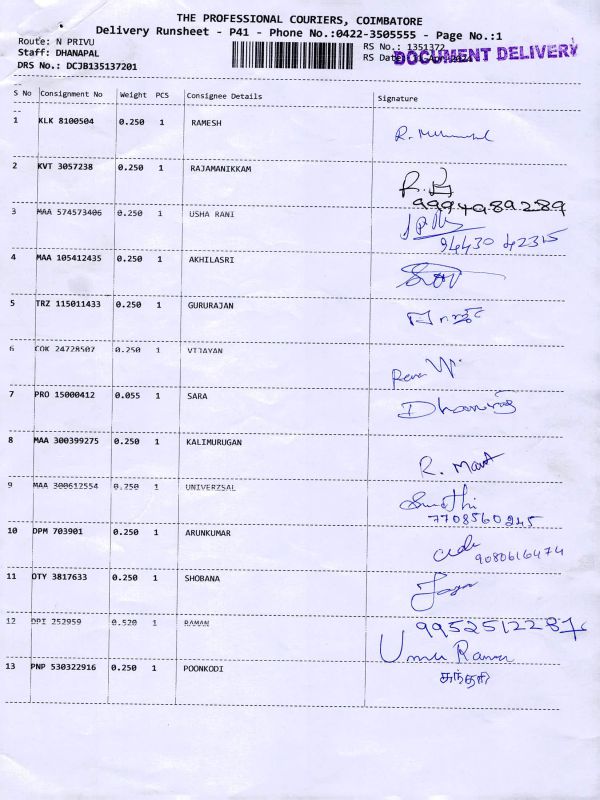 THE PROFESSIONAL COURIERS, COIMBATORE
Delivery Runsheet - P41 - Phone No.:0422-3505555 - Page No.:1
Route: N PRIVU RS No.: 1351372
Staff: DHANAPAL RS Date:
DOCUMENT DELIVERY
DRS No.: DCJB135137201
S No Consignment No Weight PCS Consignee Details Signature
1 KLK 8100504 0.250 1 RAMESH
2 KVT 3057238 0.250 1 RAJAMANIKKAM
9994989289
3 MAA 574573406 0.250 1 USHA RANI
94430 42315
4 MAA 105412435 0.250 1 AKHILASRI
5 TRZ 115011433 0.250 1 GURURAJAN
6 COK 24728507 0.250 1 VIJAYAN
7 PRO 15000412 0.055 1 SARA Dhanraj
8 MAA 300399275 0.250 1 KALIMURUGAN
9 MAA 300612554 0.250 1 UNIVERZSAL
Sumathi
7708560245
10 DPM 703901 0.250 1 ARUNKUMAR
9080616474
11 OTY 3817633 0.250 1 SHOBANA
12 DPI 252959 0.520 1 RAMAN
9952512287
13 PNP 530322916 0.250 1 POONKODI